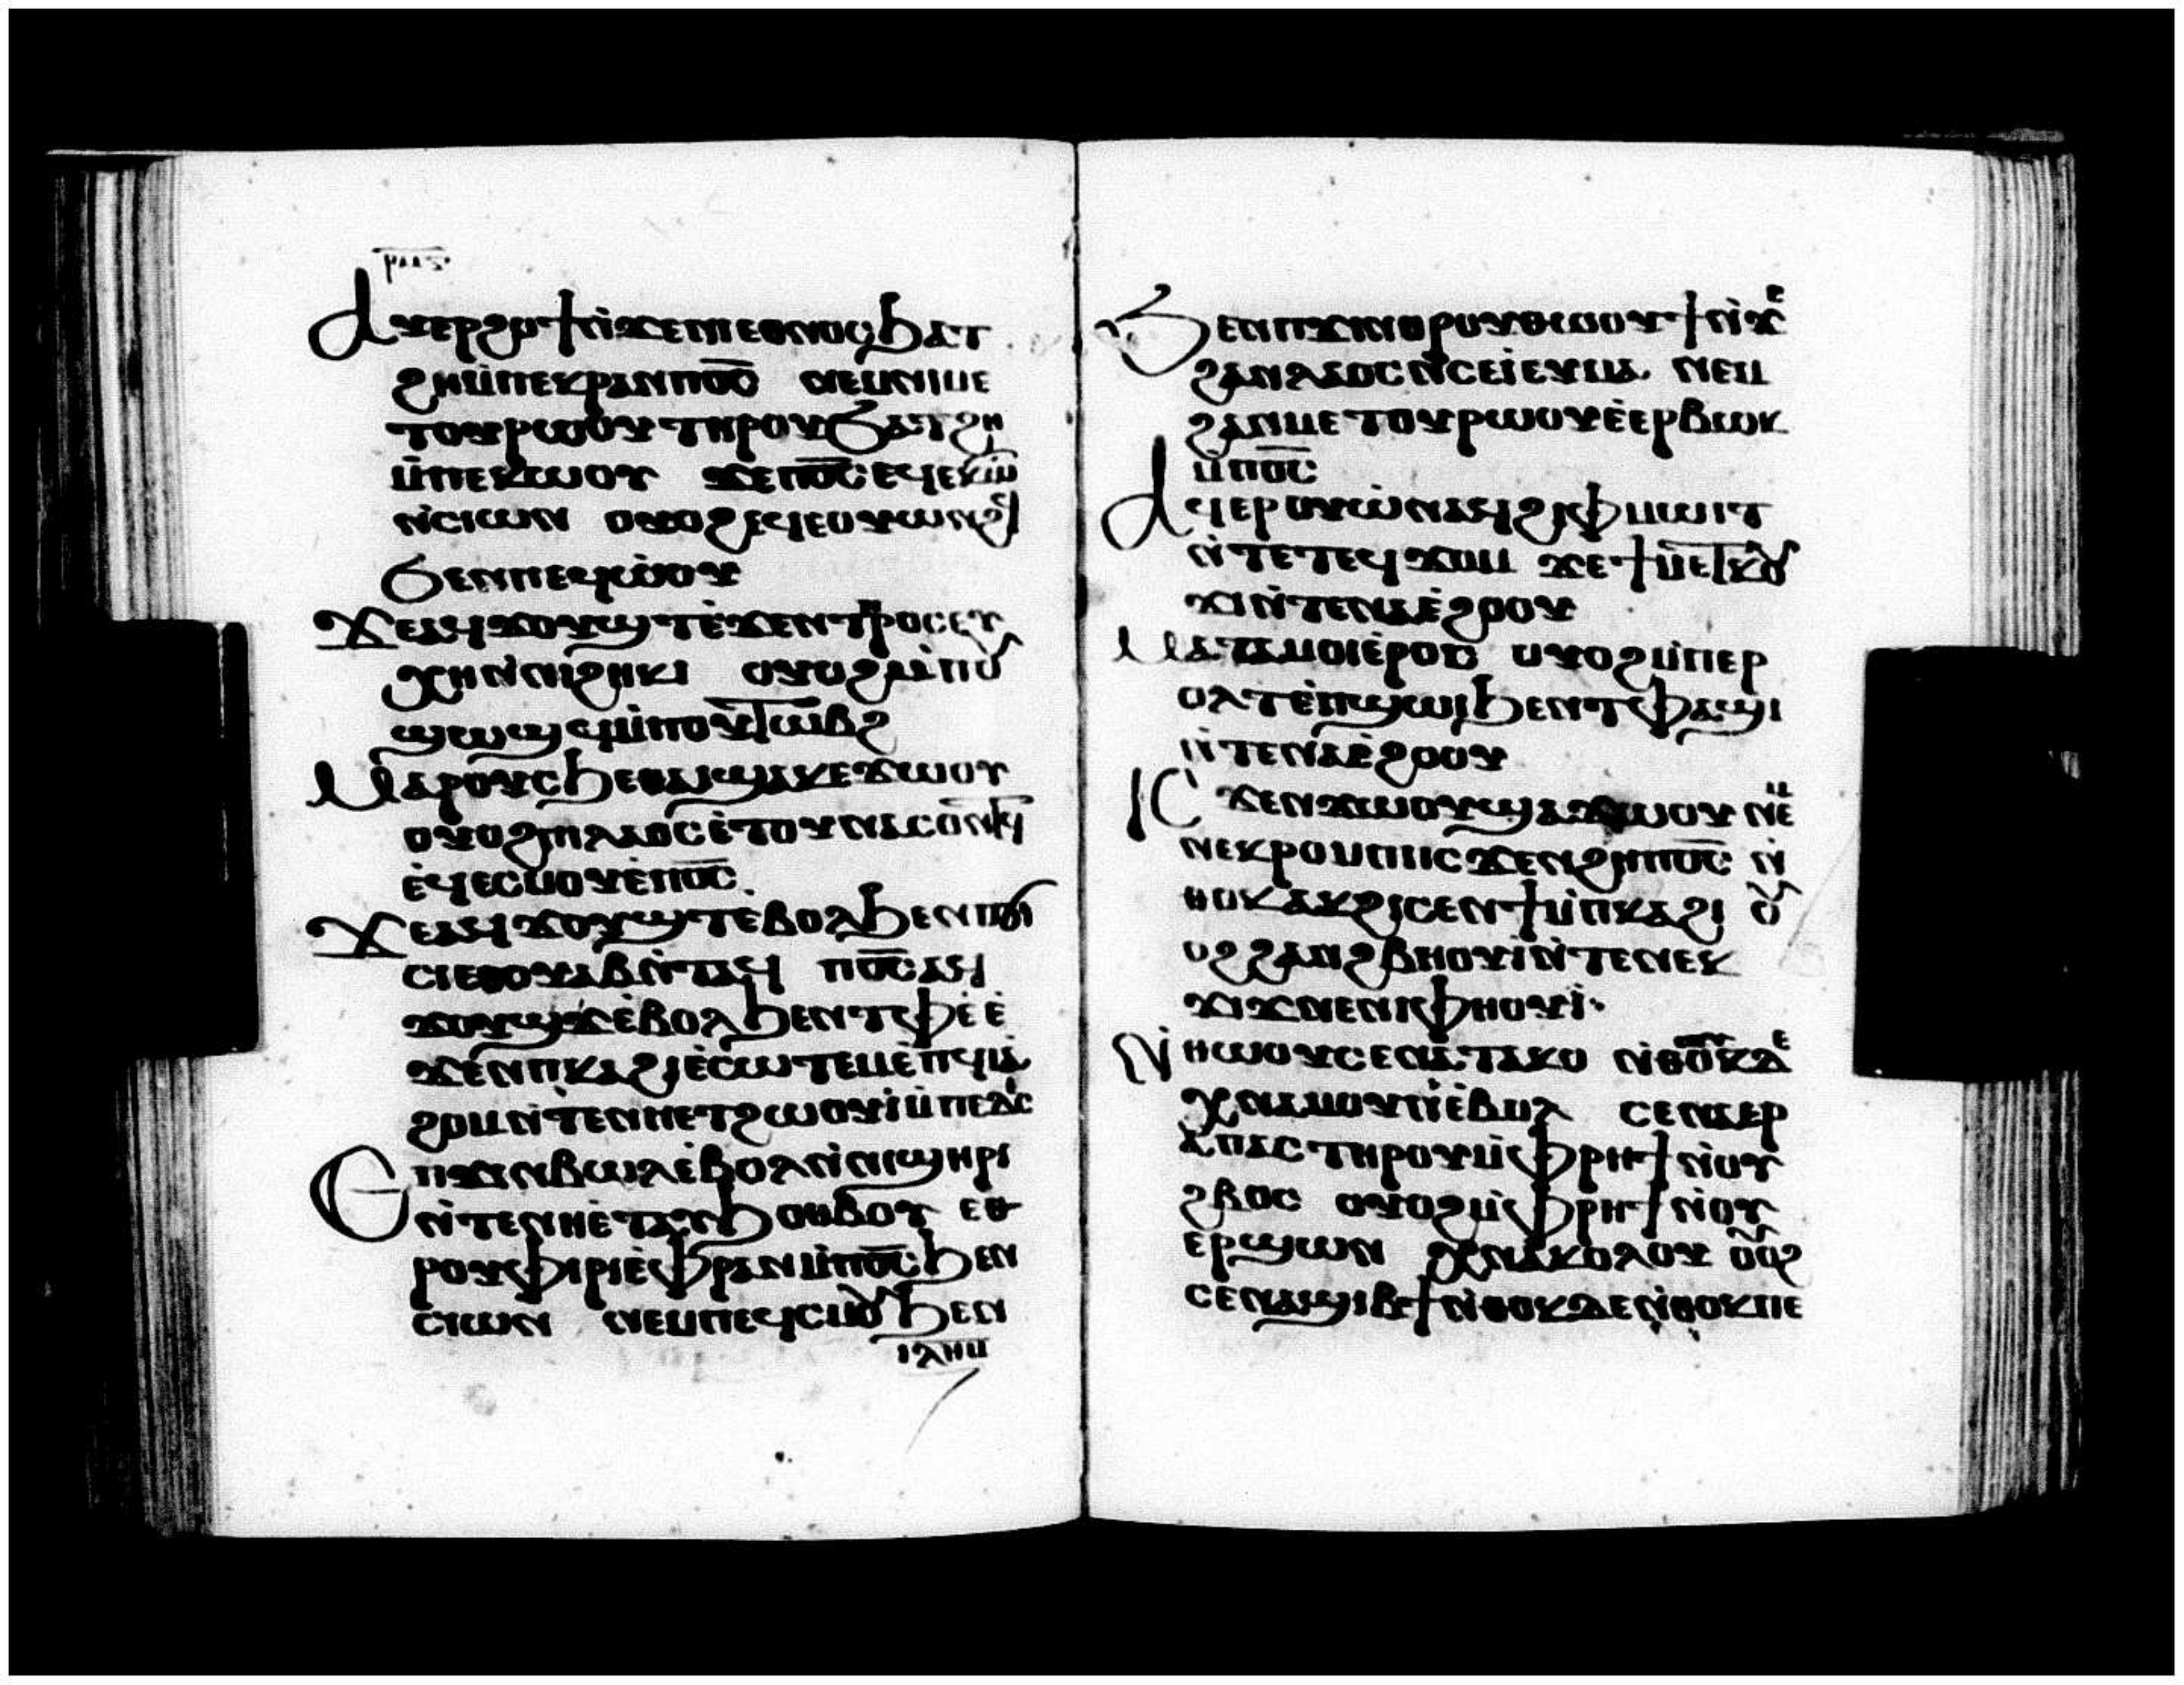 ⲣⲙⲋ
Ⲁⲩⲉⲣϩⲟϯⲛ̀ϫⲉⲛⲓⲉⲑⲛⲟⲥϧⲁⲧ
ϩⲏⲙ̀ⲡⲉⲕⲣⲁⲛⲡⲟ̅ⲥ̅ ⲛⲉⲙⲛⲓⲙⲉ
ⲧⲟⲩⲣⲱⲟⲩⲧⲏⲣⲟⲩϧⲁⲧϩⲏ
ⲙ̀ⲡⲉⲕⲱⲟⲩ ϫⲉⲡⲟ̅ⲥ̅ⲉϥⲉⲕⲱ̅
ⲛ̀ⲥⲓⲱⲛ ⲟⲩⲟϩⲉϥⲉⲟⲩⲱⲛϩϥ
ϧⲉⲛⲡⲉϥⲱ̀ⲟⲩ
Ϫⲉⲁϥϫⲟⲩϣⲧⲉ̀ϫⲉⲛⲧⲡⲣⲟⲥⲉⲩ
ⲭⲏⲛ̀ⲛⲓϩⲏⲕⲓ ⲟⲩⲟϩⲙ̀ⲡⲟⲩ
ϣⲱϣϥⲙ̀ⲡⲟⲩⲧⲱⲃϩ
Ⲙⲁⲣⲟⲩⲥϧⲉⲑⲁⲓϣⲁⲕⲉϫⲱⲟⲩ
ⲟⲩⲟϩⲡⲓⲗⲁⲟⲥⲉ̀ⲧⲟⲩⲛⲁⲥⲟⲛⲧϥ
ⲉ̀ϥⲉⲥⲙⲟⲩⲉ̀ⲡⲟ̅ⲥ̅
Ϫⲉⲁϥϫⲟⲩϣⲧⲉ̀ⲃⲟⲗϧⲉⲛⲡϭⲓ
ⲥⲓⲉⲑⲟⲩⲁⲃⲛ̀ⲧⲁϥ ⲡⲟ̅ⲥ̅ⲁϥ
ϫⲟⲩϣⲧⲉ̀ⲃⲟⲗϧⲉⲛⲧⲫⲉ̀ⲉ̀
ϫⲉⲛⲡⲕⲁϩⲓⲉ̀ⲥⲱⲧⲉⲙⲉ̀ⲡϥⲓⲁ̀
ϩⲟⲙⲛ̀ⲧⲉⲛⲏⲉⲧϩⲱⲟⲩⲓⲙ̀ⲡⲉⲇⲥ
Ⲉⲡϫⲓⲛⲃⲱⲗⲉ̀ⲃⲟⲗⲛ̀ⲛⲓϣⲏⲣⲓ
ⲛ̀ⲧⲉⲛⲏⲉ̀ⲧⲁⲩϧⲟⲑⲃⲟⲩ ⲉⲑ
ⲣⲟⲩⲫⲓⲣⲓⲉ̀ⲫⲣⲁⲛⲙ̀ⲡⲟ̅ⲥ̅ϧⲉⲛ
ⲥⲓⲱⲛ ⲛⲉⲙⲡⲉϥⲥⲙⲟⲩϧⲉⲛ
ⲓⲗⲏⲙ
Ϧⲉⲛⲡϫⲓⲛⲑⲣⲟⲩⲑⲱⲟⲩϯⲛ̀ϫⲉ
ϩⲁⲛⲗⲁⲟⲥⲛ̀ⲥⲉⲓ̀ⲉⲩⲙⲁ ⲛⲉⲙ
ϩⲁⲛⲙⲉⲧⲟⲩⲣⲱⲟⲩⲉ̀ⲉⲣⲃⲱⲕ
ⲙ̀ⲡⲟ̅ⲥ̅
Ⲁϥⲉⲣⲟⲩⲱ̀ⲛⲁϥϩⲓⲫⲙⲱⲓⲧ
ⲛ̀ⲧⲉⲧⲉϥϫⲟⲙ ϫⲉϯⲙⲉⲧⲕⲟⲩ
ϫⲓⲛ̀ⲧⲉⲛⲁⲉ̀ϩⲟⲟⲩ
Ⲙⲁⲧⲁⲙⲟⲓⲉ̀ⲣⲟⲥ ⲟⲩⲟϩⲙ̀ⲡⲉⲣ
ⲟⲗⲧⲉ̀ⲡϣⲱⲓϧⲉⲛⲧⲫⲁϣⲓ
ⲛ̀ⲧⲉⲛⲁⲉ̀ϩⲟⲟⲩ
ⲓⲥ ϫⲉⲛϫⲱⲟⲩϣⲁϫⲱⲟⲩ ⲛⲉ̀
ⲛⲉⲕⲣⲟⲙⲡⲓⲓⲥϫⲉⲛϩⲏⲡⲟ̅ⲥ̅ ⲛ̀
ⲑⲟⲕⲁⲕϩⲓⲥⲉⲛϯⲙ̀ⲡⲕⲁϩⲓ ⲟⲩ
ⲟϩϩⲁⲛϩⲃⲏⲟⲩⲓ̀ⲛ̀ⲧⲉⲛⲉⲕ
ϫⲓϫⲛⲉⲛⲓⲫⲏⲟⲩⲓ̀
Ⲛ̀ⲑⲱⲟⲩⲥⲉⲛⲁⲧⲁⲕⲟ ⲛ̀ⲑⲟⲕⲇⲉ
ⲭⲛⲁⲙⲟⲩⲛⲉ̀ⲃⲟⲗ ⲥⲉⲛⲁⲉⲣ
ⲁⲡⲁⲥⲧⲏⲣⲟⲩⲙ̀ⲫⲣⲏϯⲛ̀ⲟⲩ
ϩⲃⲟⲥ ⲟⲩⲟϩⲙ̀ⲫⲣⲏϯⲛ̀ⲟⲩ
ⲉⲣϣⲱⲛ ⲭⲛⲁⲕⲟⲗⲟⲩ ⲟⲩⲟϩ
ⲥⲉⲛⲁϣⲓⲃϯⲛ̀ⲑⲟⲕⲇⲉⲛ̀ⲑⲟⲕⲡⲉ